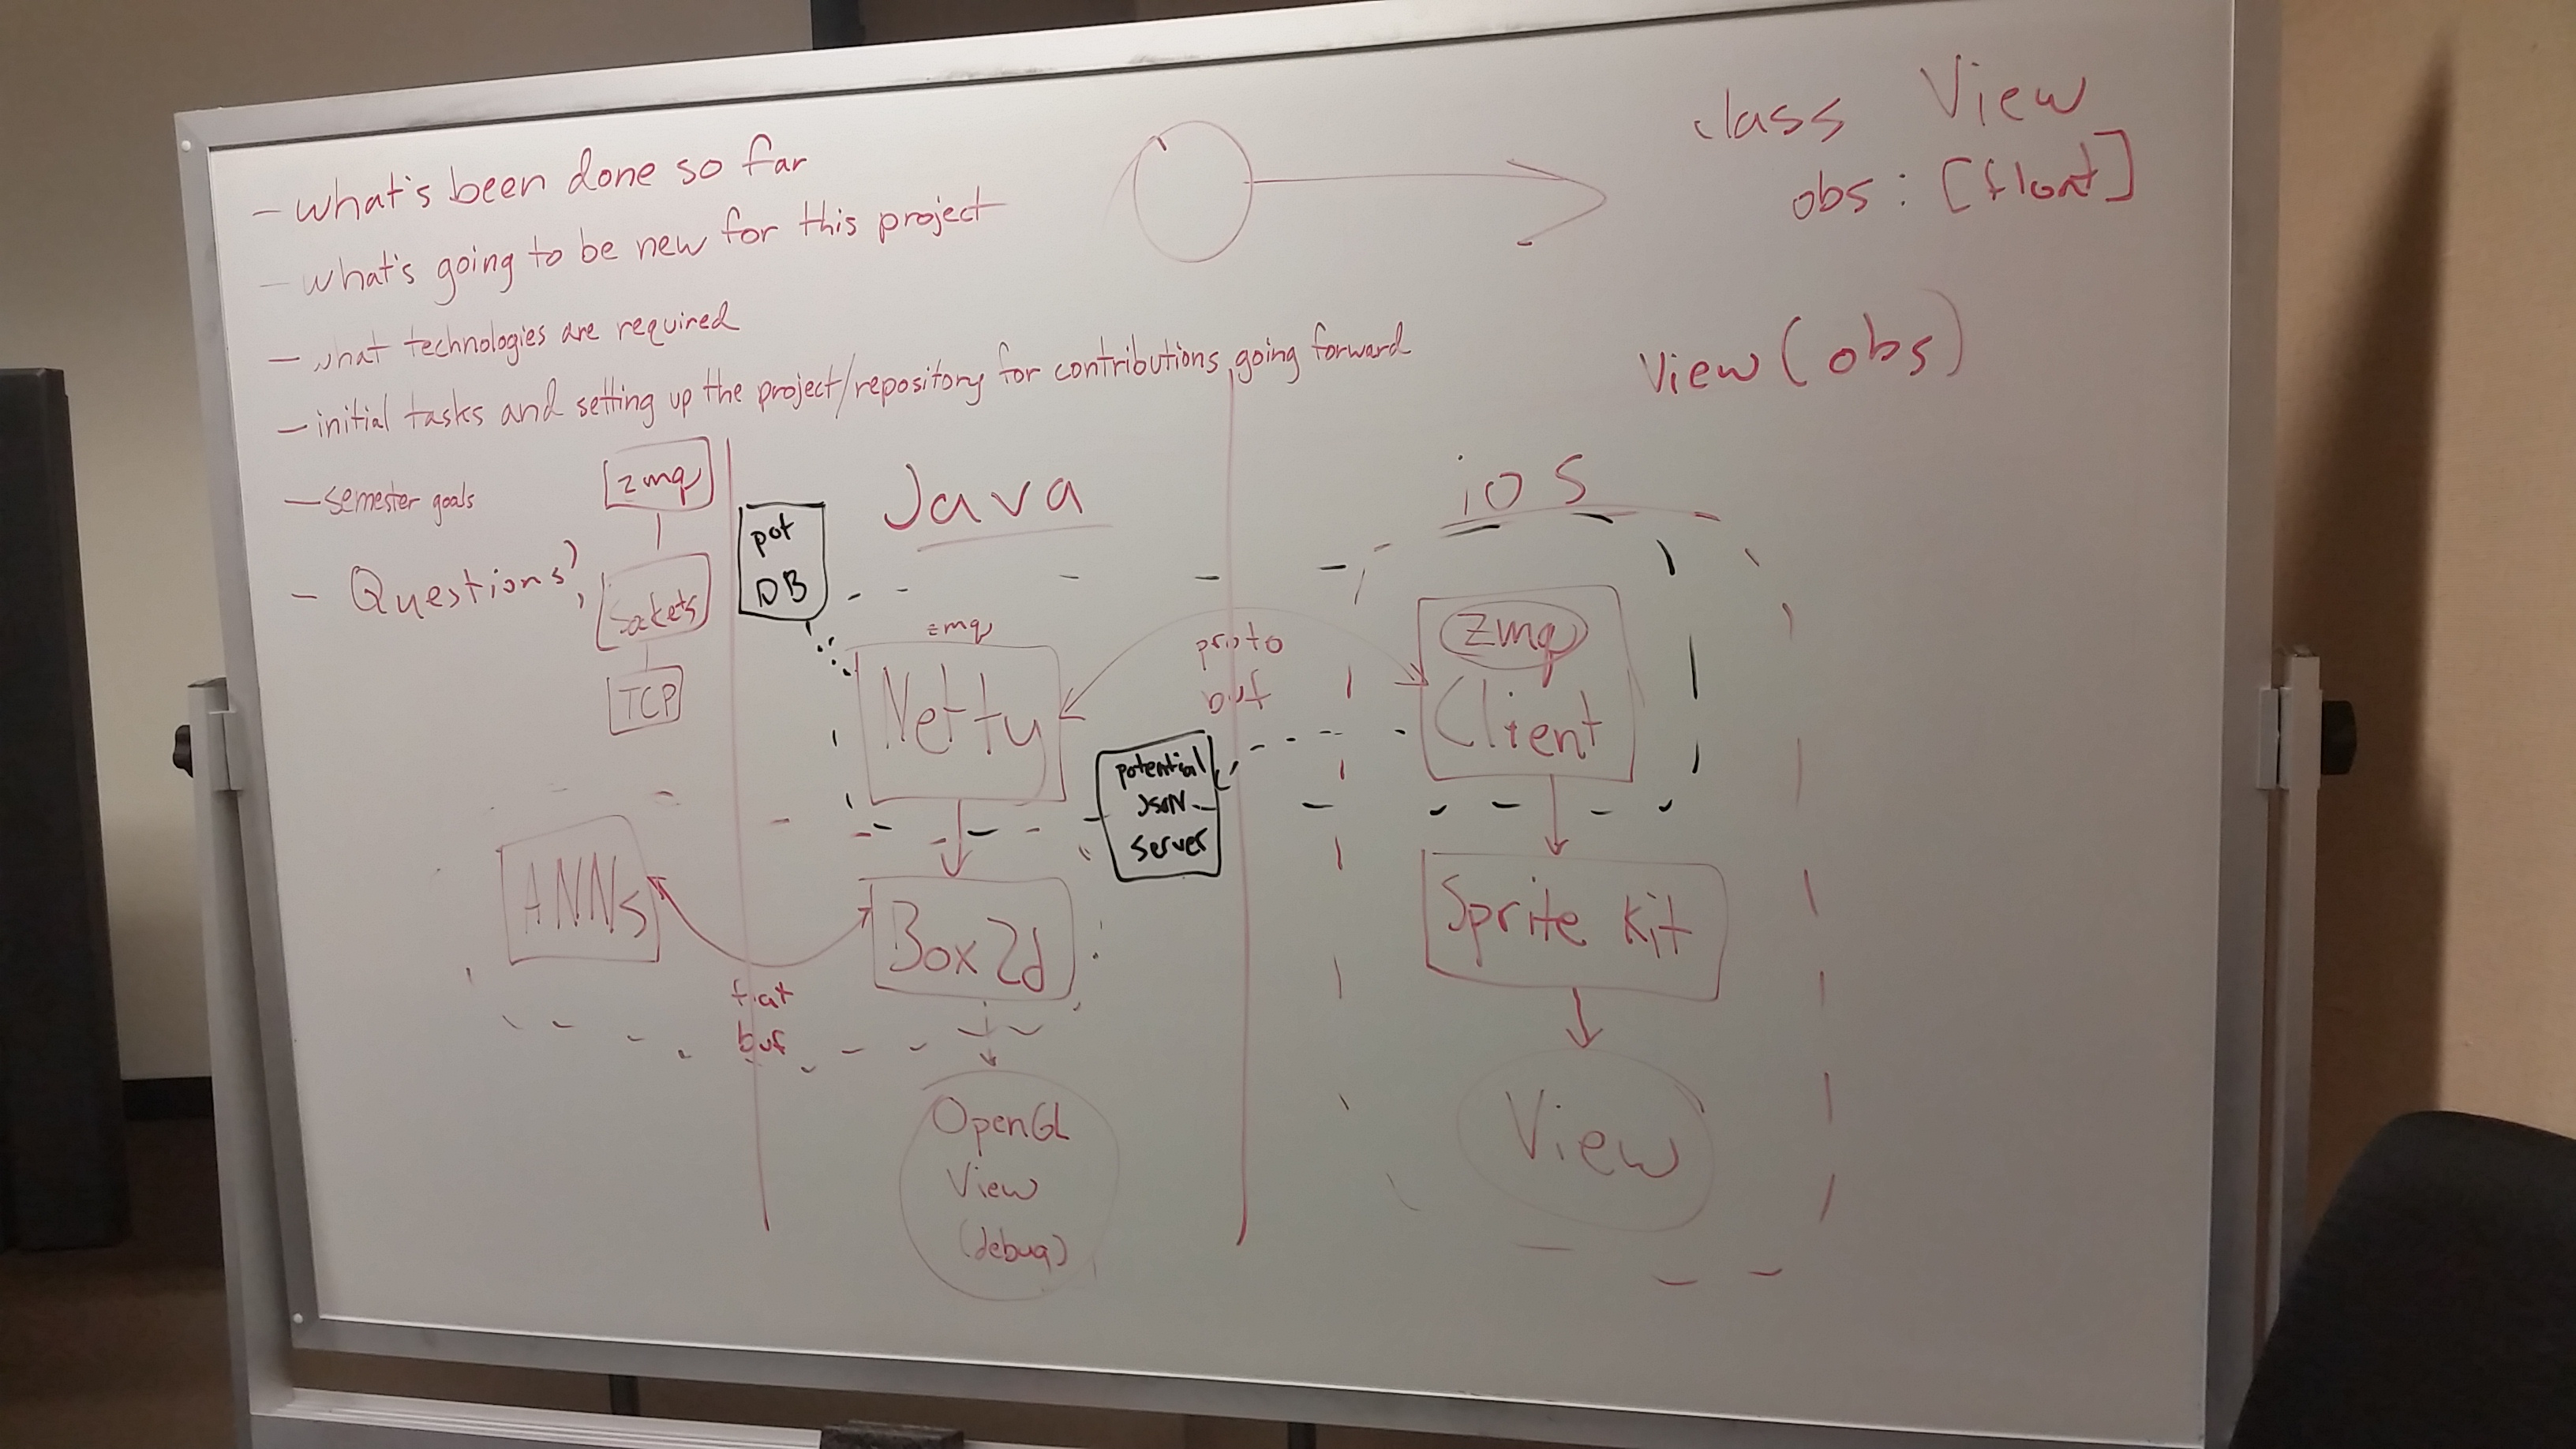 - what's been done so far
- what's going to be new for this project
- what technologies are required
- initial tasks and setting up the project/repository for contributions going forward
- semester goals
- Questions?
class View
obs: [float]
View (obs)
zmq
Sockets
TCP
Java
pot
DB
zmq
Netty
proto
buf
potential
JSON
Server
ANNs
flat
buf
Box2d
OpenGL
View
(debug)
iOS
zmq
Client
Sprite Kit
View